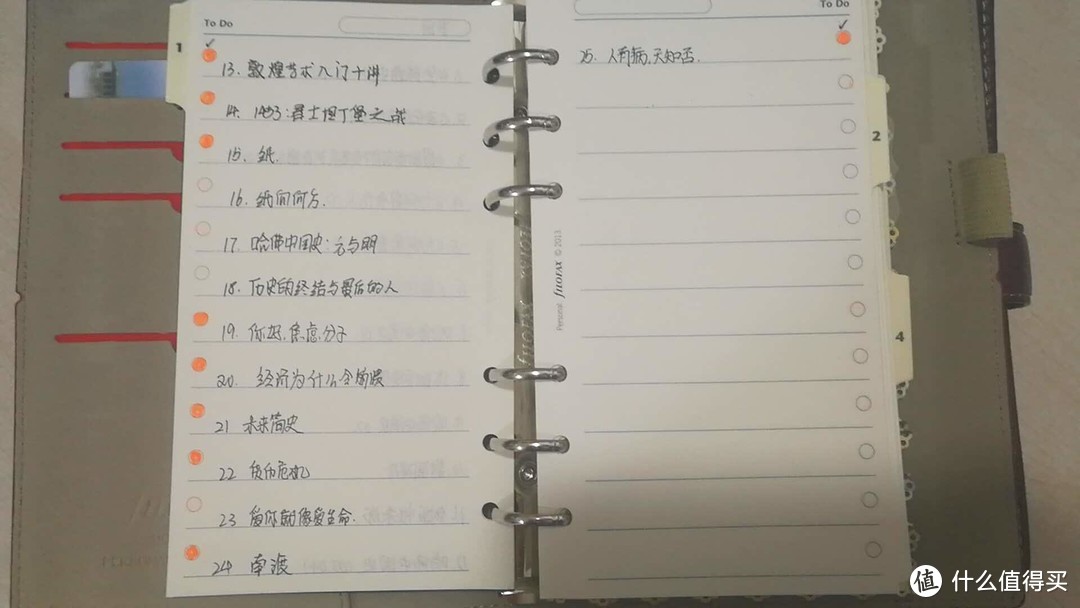 To Do
1
13. 敦煌艺术入门十讲
14. 1453:君士坦丁堡之战
15. 纸
16. 纸间何方.
17. 哈佛中国史:元与明
18. 历史的终结与最后的人
19. 你好,焦虑分子
20. 经济为什么会崩溃
21 未来简史
22 货币危机
23 爱你就像爱生命.
24 南渡
To Do
25. 人有病,天知否.
2
4
Personal filofax © 2013
值 什么值得买